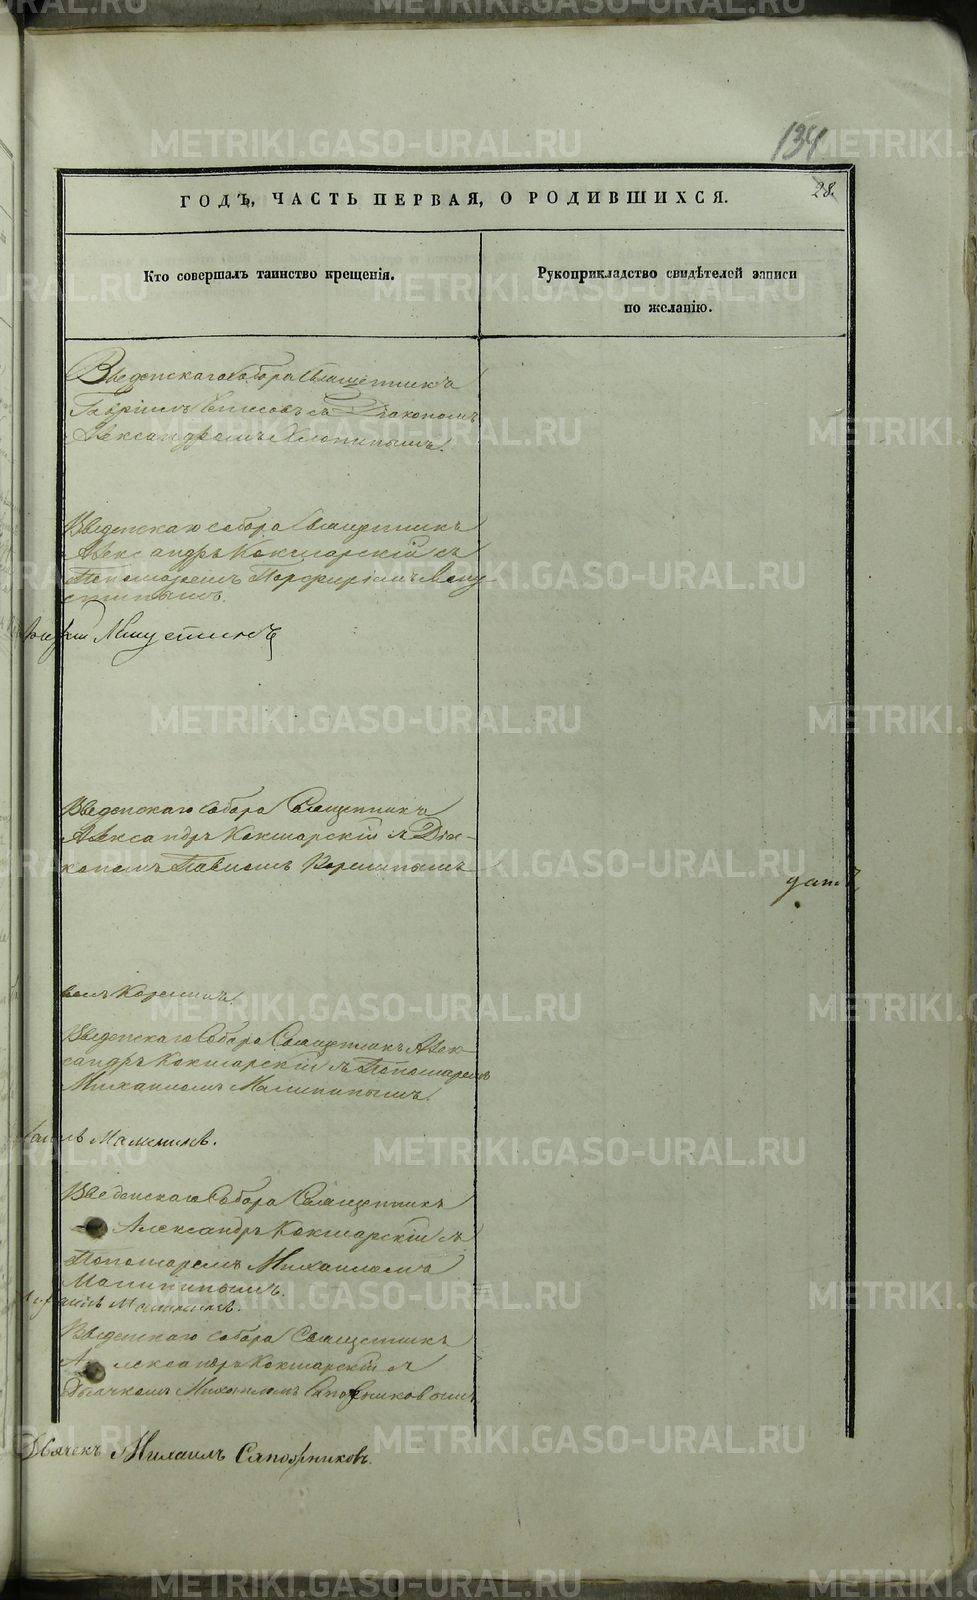 134
ГОДЪ, ЧАСТЬ ПЕРВАЯ, О РОДИВШИХСЯ.
28.
Кто совершалъ таинство крещенія.
Рукоприкладство свидѣтелей записи
по желанію.
Введенскаго Собора Священникъ
Гавріилъ съ Діакономъ
Александромъ Хлопинымъ.
Введенскаго собора Священникъ
Александръ Кокшарскій съ
Пономаремъ Порфиріемъ
Введенскаго собора Священникъ
Александръ Кокшарскій и Діа-
кономъ Павломъ Кормшинымъ
Введенскаго Собора Священникъ Алек-
сандръ Кокшарскій съ Пономаремъ
Михаиломъ Малининымъ.
Малининъ.
Введенскаго Собора Священникъ
Александръ Кокшарскій съ
Пономаремъ Михаиломъ
Малининымъ.
Малининъ.
Введенскаго собора Священникъ
Александръ Кокшарскій съ
Дьячкомъ Михаиломъ Сапожниковымъ
Дьячекъ Михаилъ Сапожниковъ.
METRIKI.GASO-URAL.RU